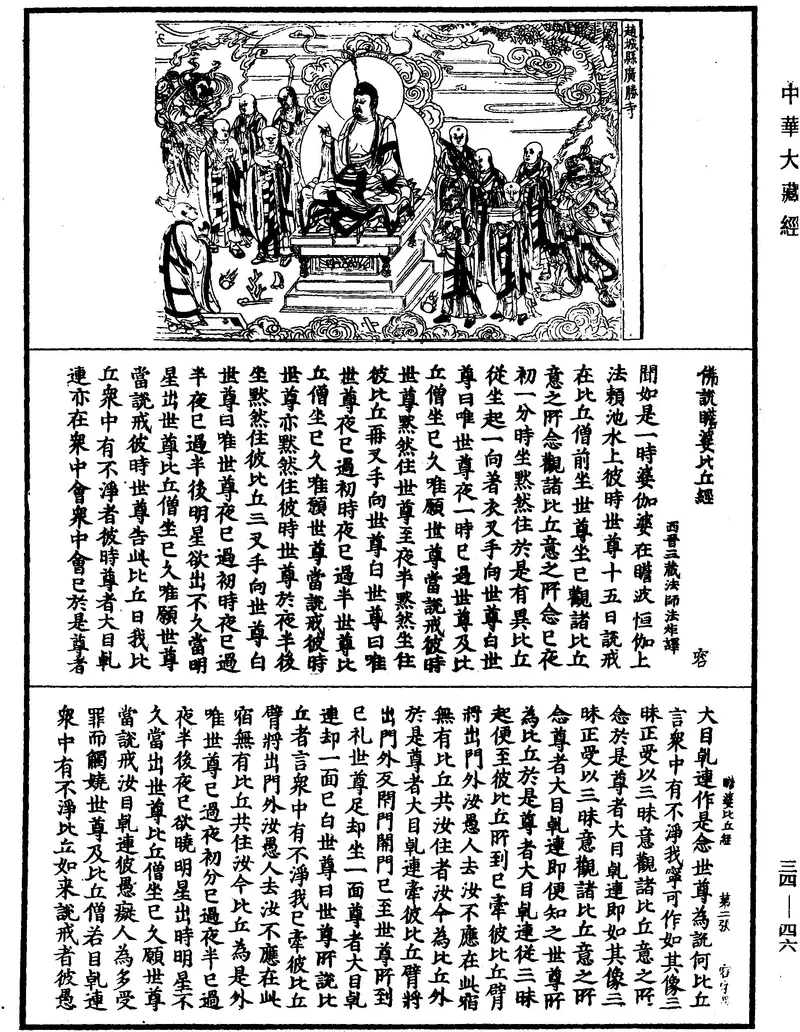 中華大藏經
三四—四六
趙城縣廣勝寺
佛説瞻婆比丘經
西晉三藏法師法炬譯 容
聞如是一時婆伽婆在瞻波恒伽上
法賴池水上彼時世尊十五日説戒
在比丘僧前坐世尊坐已觀諸比丘
意之所念觀諸比丘意之所念已夜
初一分時坐黙然住於是有異比丘
從坐起一向著衣叉手向世尊白世
尊曰唯世尊夜一時已過世尊及比
丘僧坐已久唯願世尊當説戒彼時
世尊黙然住世尊至夜半黙然坐住
彼比丘再叉手向世尊白世尊曰唯
世尊夜已過初時夜已過半世尊比
丘僧坐已久唯願世尊當説戒彼時
世尊亦黙然住彼時世尊於夜半後
坐黙然住彼比丘三叉手向世尊白
世尊曰唯世尊夜已過初時夜已過
半夜已過半後明星欲出不久當明
星出世尊比丘僧坐已久唯願世尊
當説戒彼時世尊告此比丘曰我比
丘衆中有不淨者彼時尊者大目乹
連亦在衆中會衆中會已於是尊者
瞻婆比丘經 第二張 容字号
大目乹連作是念世尊為説何比丘
言衆中有不淨我寧可作如其像三
昧正受以三昧意觀諸比丘意之所
念於是尊者大目乹連即如其像三
昧正受以三昧意觀諸比丘意之所
念尊者大目乹連即便知之世尊所
為比丘於是尊者大目乹連從三昧
起便至彼比丘所到已牽彼比丘臂
將出門外汝愚人去汝不應在此宿
無有比丘共汝住者汝今為比丘外
於是尊者大目乹連牽彼比丘臂將
出門外反閇門閇門已至世尊所到
已礼世尊足却坐一面尊者大目乹
連却一面已白世尊曰世尊所説比
丘者言衆中有不淨我已牽彼比丘
臂將出門外汝愚人去汝不應在此
宿無有比丘共住汝今比丘為是外
唯世尊已過夜初分已過夜半已過
夜半後夜已欲曉明星出時明星不
久當出世尊比丘僧坐已久願世尊
當説戒汝目乹連彼愚癡人為多受
罪而觸嬈世尊及比丘僧若目乹連
衆中有不淨比丘如来説戒者彼愚